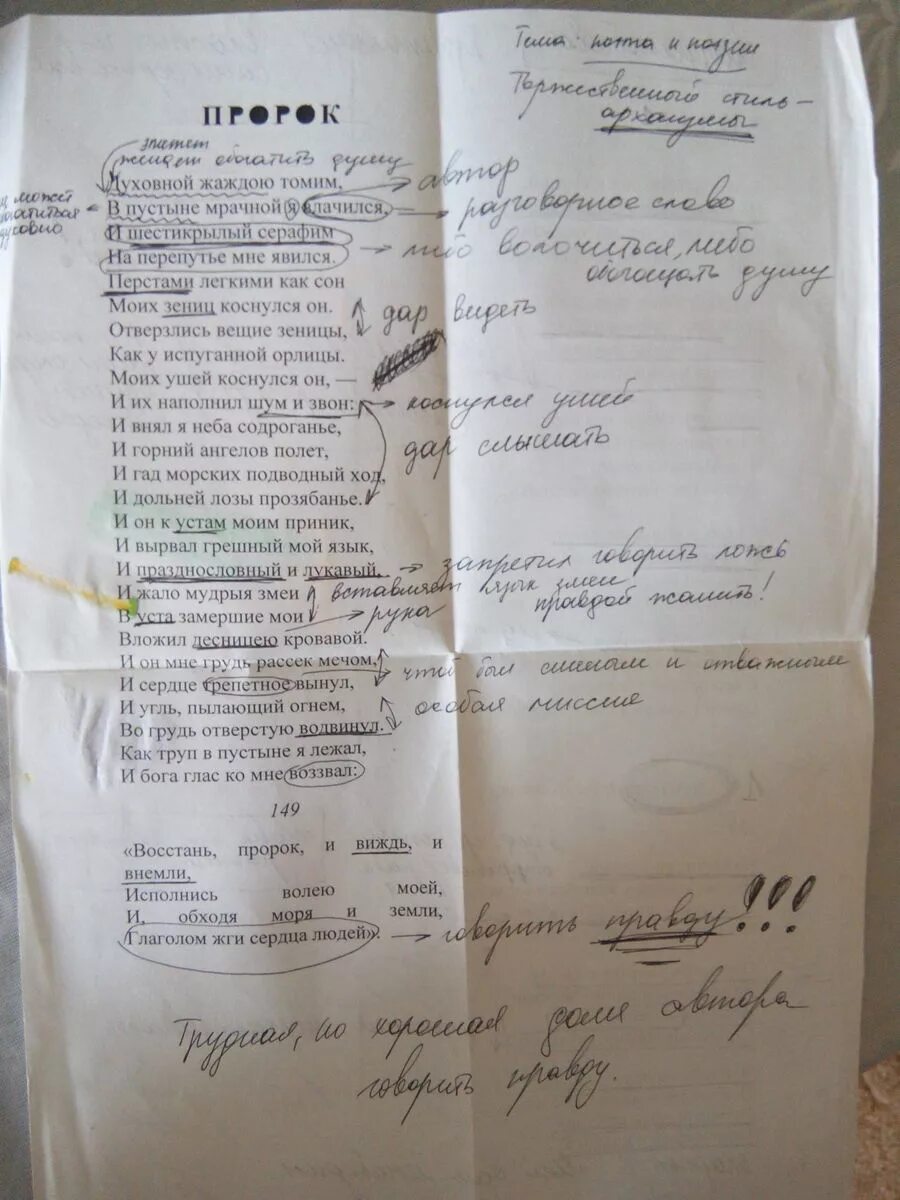 Тема: поэта и поэзии
Торжественный стиль –
архаизмы
ПРОРОК
эпитет
жаждет обогатить душу
Духовной жаждою томим, → автор
может
духовно
В пустыне мрачной я влачился, → разговорное слово
И шестикрылый серафим
На перепутье мне явился. → либо волочиться, либо
обогащать душу
Перстами легкими как сон
Моих зениц коснулся он.
дар видеть
Отверзлись вещие зеницы,
Как у испуганной орлицы.
Моих ушей коснулся он, —
И их наполнил шум и звон: → коснулся ушей
И внял я неба содроганье,
дар слышать
И горний ангелов полет,
И гад морских подводный ход,
И дольней лозы прозябанье.
И он к устам моим приник,
И вырвал грешный мой язык,
И празднословный и лукавый, → запретил говорить ложь
И жало мудрыя змеи вставляет язык змеи
правдой жалить!
В уста замершие мои → рука
Вложил десницею кровавой.
И он мне грудь рассек мечом, → чтоб был смелым и отважным
И сердце трепетное вынул,
И угль, пылающий огнем, особая миссия
Во грудь отверстую водвинул.
Как труп в пустыне я лежал,
И бога глас ко мне воззвал:
149
«Восстань, пророк, и виждь, и
внемли,
Исполнись волею моей,
И, обходя моря и земли,
Глаголом жги сердца людей». → говорить правду!!!
Трудная, но хорошая доля автора
говорить правду.